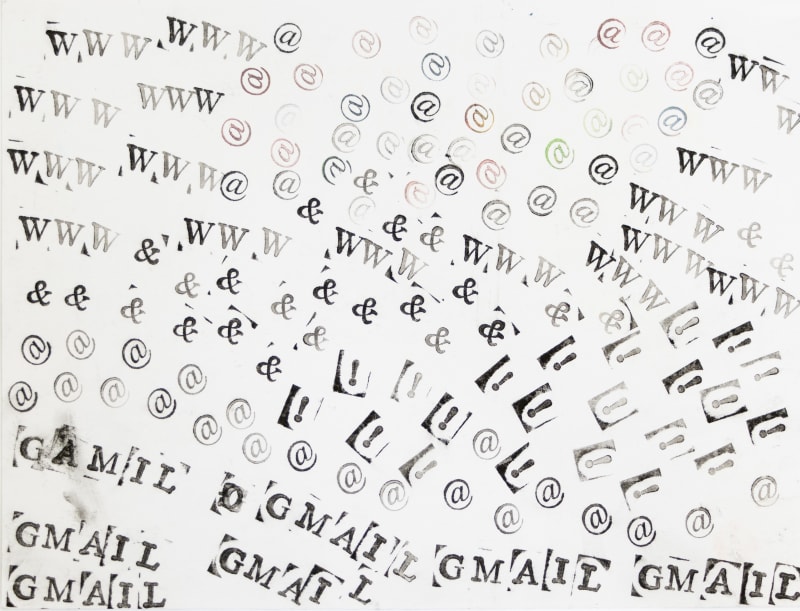 WWW WWW @ @ @ @ @ @ @
@ @ @ @ @ @ @ WW
WWW WWW @ @ @ @ @ @ @ @ W
@ @ @ @ @ @ @ @ @
WWW WWW @ @ @ @ & @ @ @ @ @ WWW
& @ @ @ @ WWW &
WWW & WWW & & WWW WWW WWW WWW &
& & & & & & & & & & WWW
& & & & & & & !
@ @ @ & ! ! ! ! !
@ @ @ @ @ & ! ! ! ! ! ! !
@ @ ! ! ! ! ! ! !
GAMIL @ @ ! @ ! ! ! !
O GMAIL @ @ @ @ @ @ @ @ @
GMAIL GMAIL GMAIL GMAIL
GMAIL